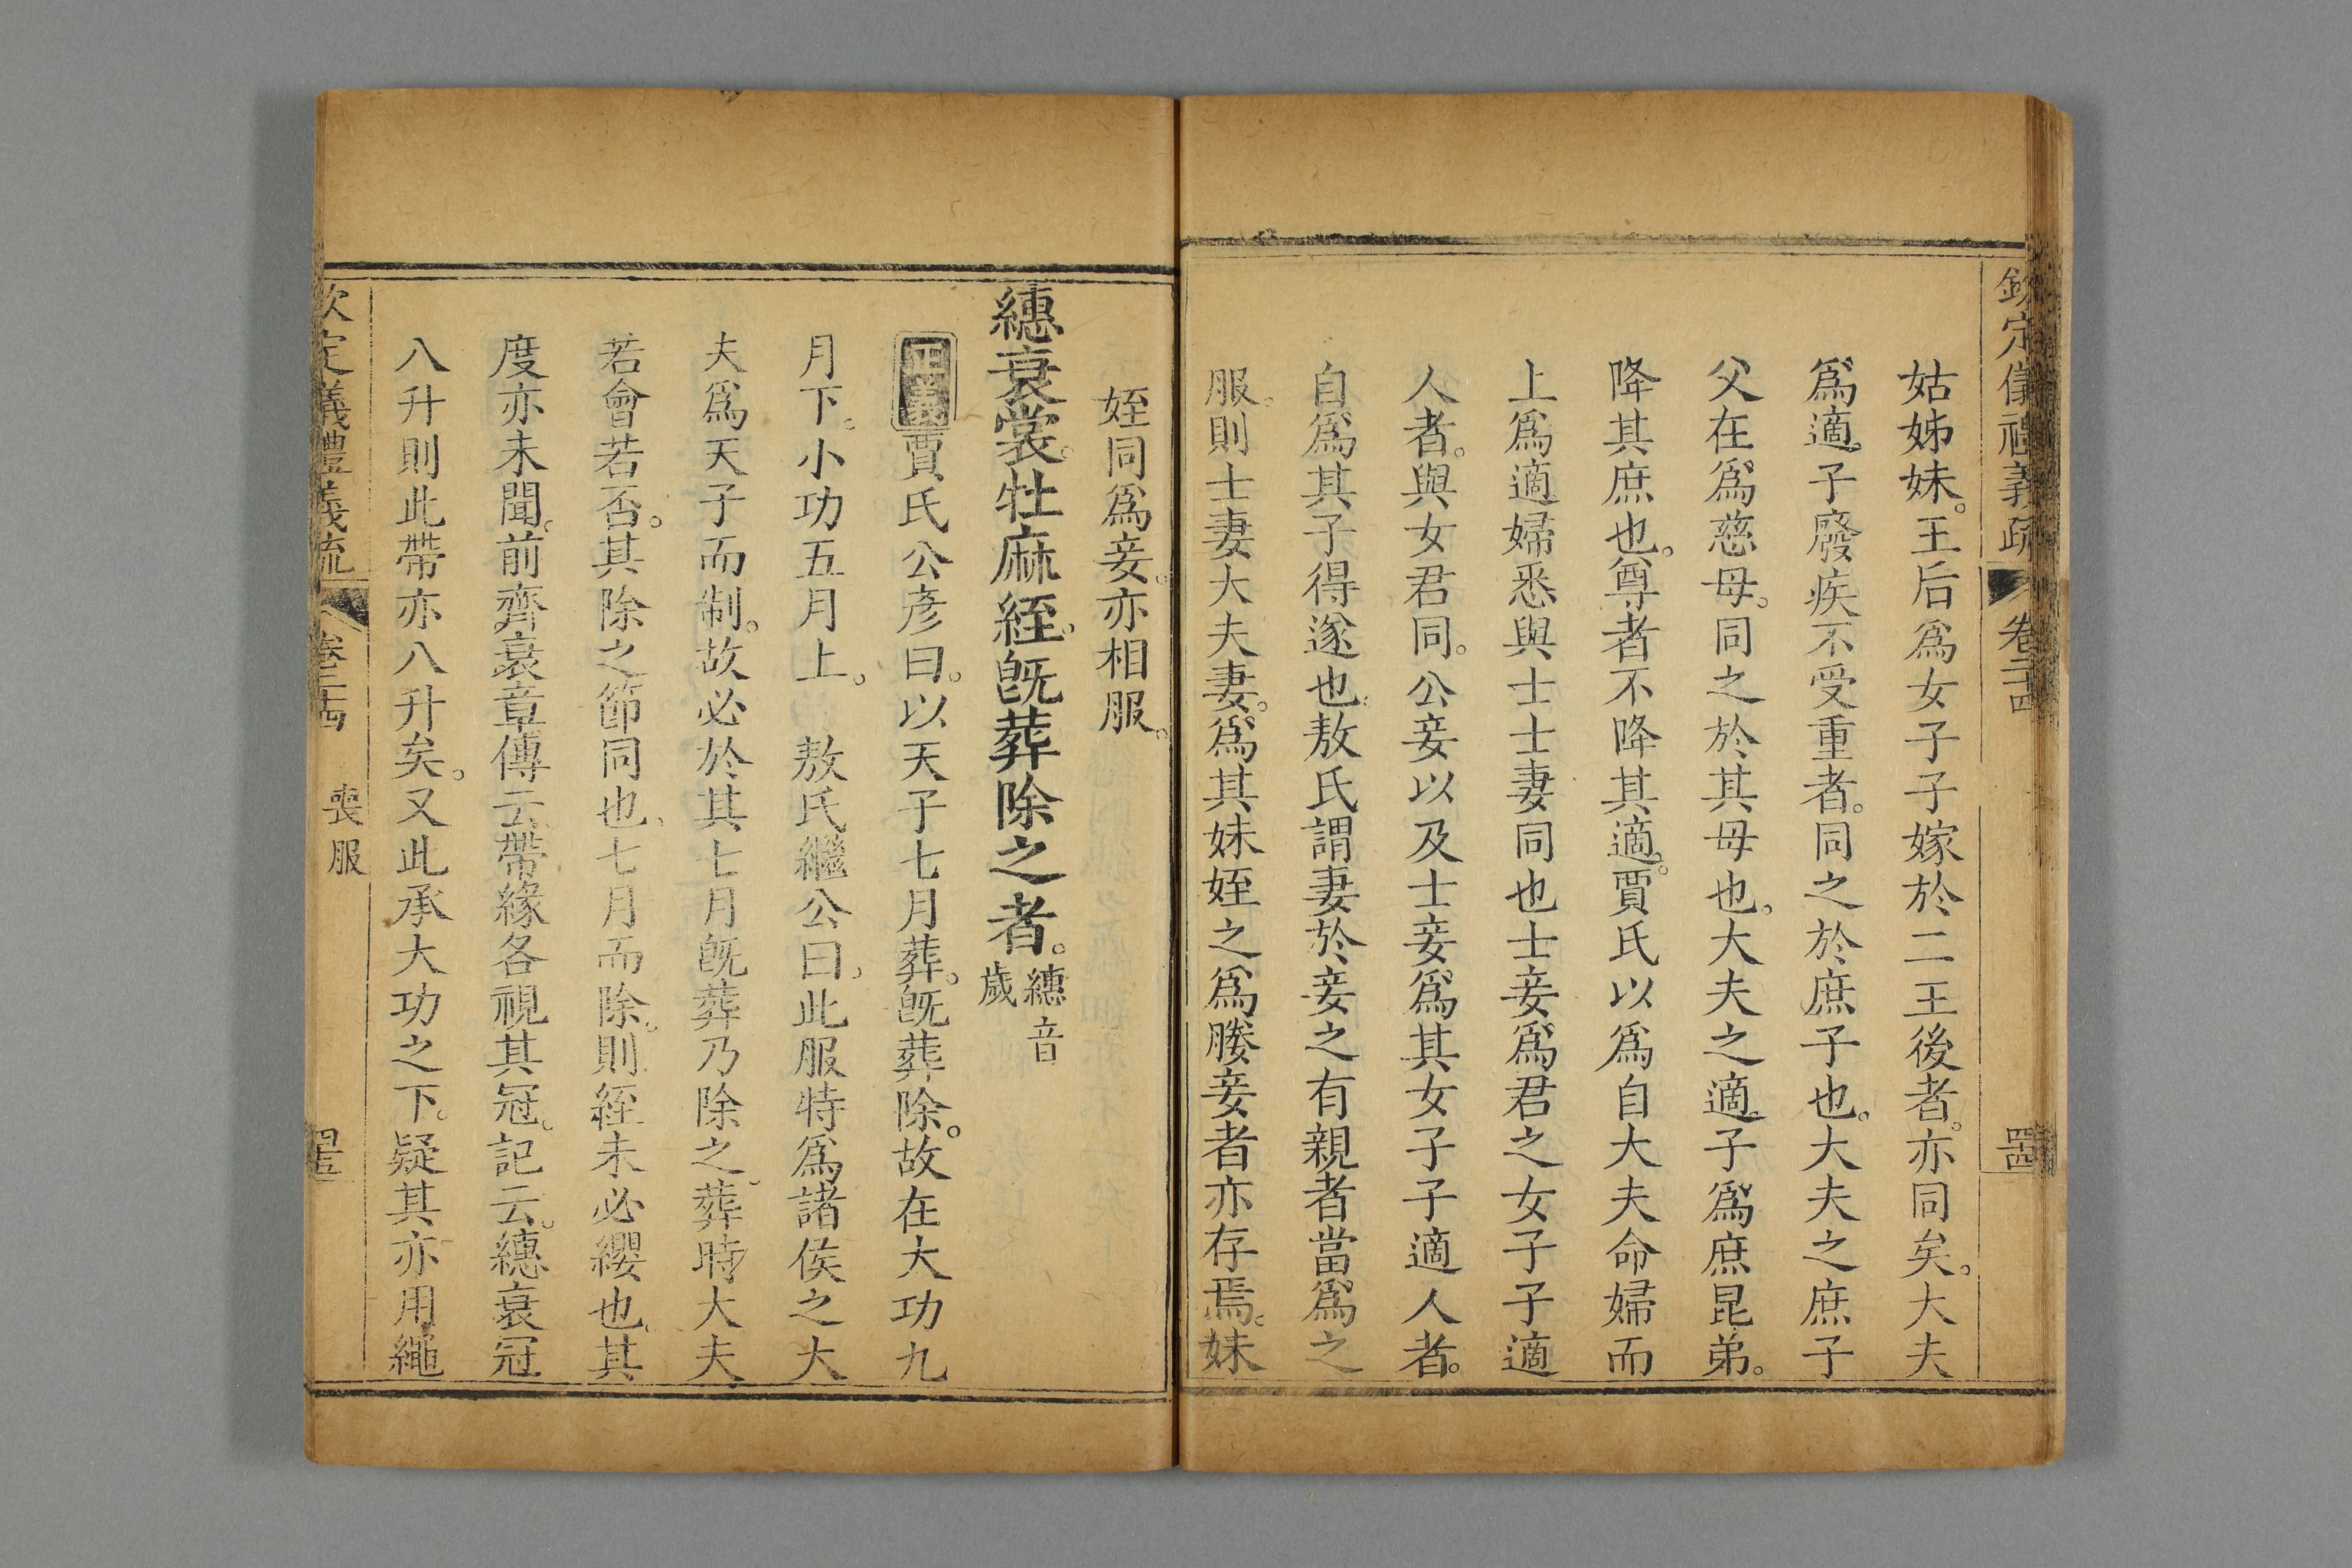 欽定儀禮義疏 卷二十四 四十四
姑姊妹。王后爲女子子嫁於二王後者。亦同矣。大夫
爲適。子廢疾不受重者。同之於庶子也。大夫之庶子
父在爲慈母。同之於其母也。大夫之適子爲庶昆弟。
降其庶也。尊者不降其適。賈氏以爲自大夫命婦而
上爲適婦悉與士士妻同也士妾爲君之女子子適
人者。與女君同。公妾以及士妾爲其女子子適人者。
自爲其子得遂也。敖氏謂妻於妾之有親者當爲之
服。則士妻大夫妻。爲其妹姪之爲媵妾者亦存焉。妹
姪同爲妾。亦相服。
繐衰裳。牡麻絰。旣葬除之者。繐音
歲
正義賈氏公彦曰。以天子七月葬。旣葬除。故在大功九
月下。小功五月上。 敖氏繼公曰。此服特爲諸侯之大
夫爲天子而制。故必於其七月旣葬乃除之。葬時大夫
若會若否。其除之節同也。七月而除。則絰未必纓也。其
度亦未聞。前齊衰章傳云。帶緣各視其冠。記云。繐衰冠
八升則此帶亦八升矣。又此承大功之下。疑其亦用繩
欽定儀禮義疏 卷二十四 喪服 四十五